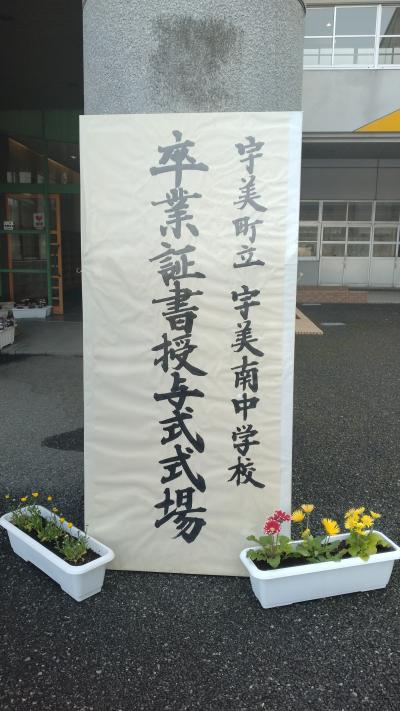 宇美町立 宇美南中学校
卒業証書授与式式場